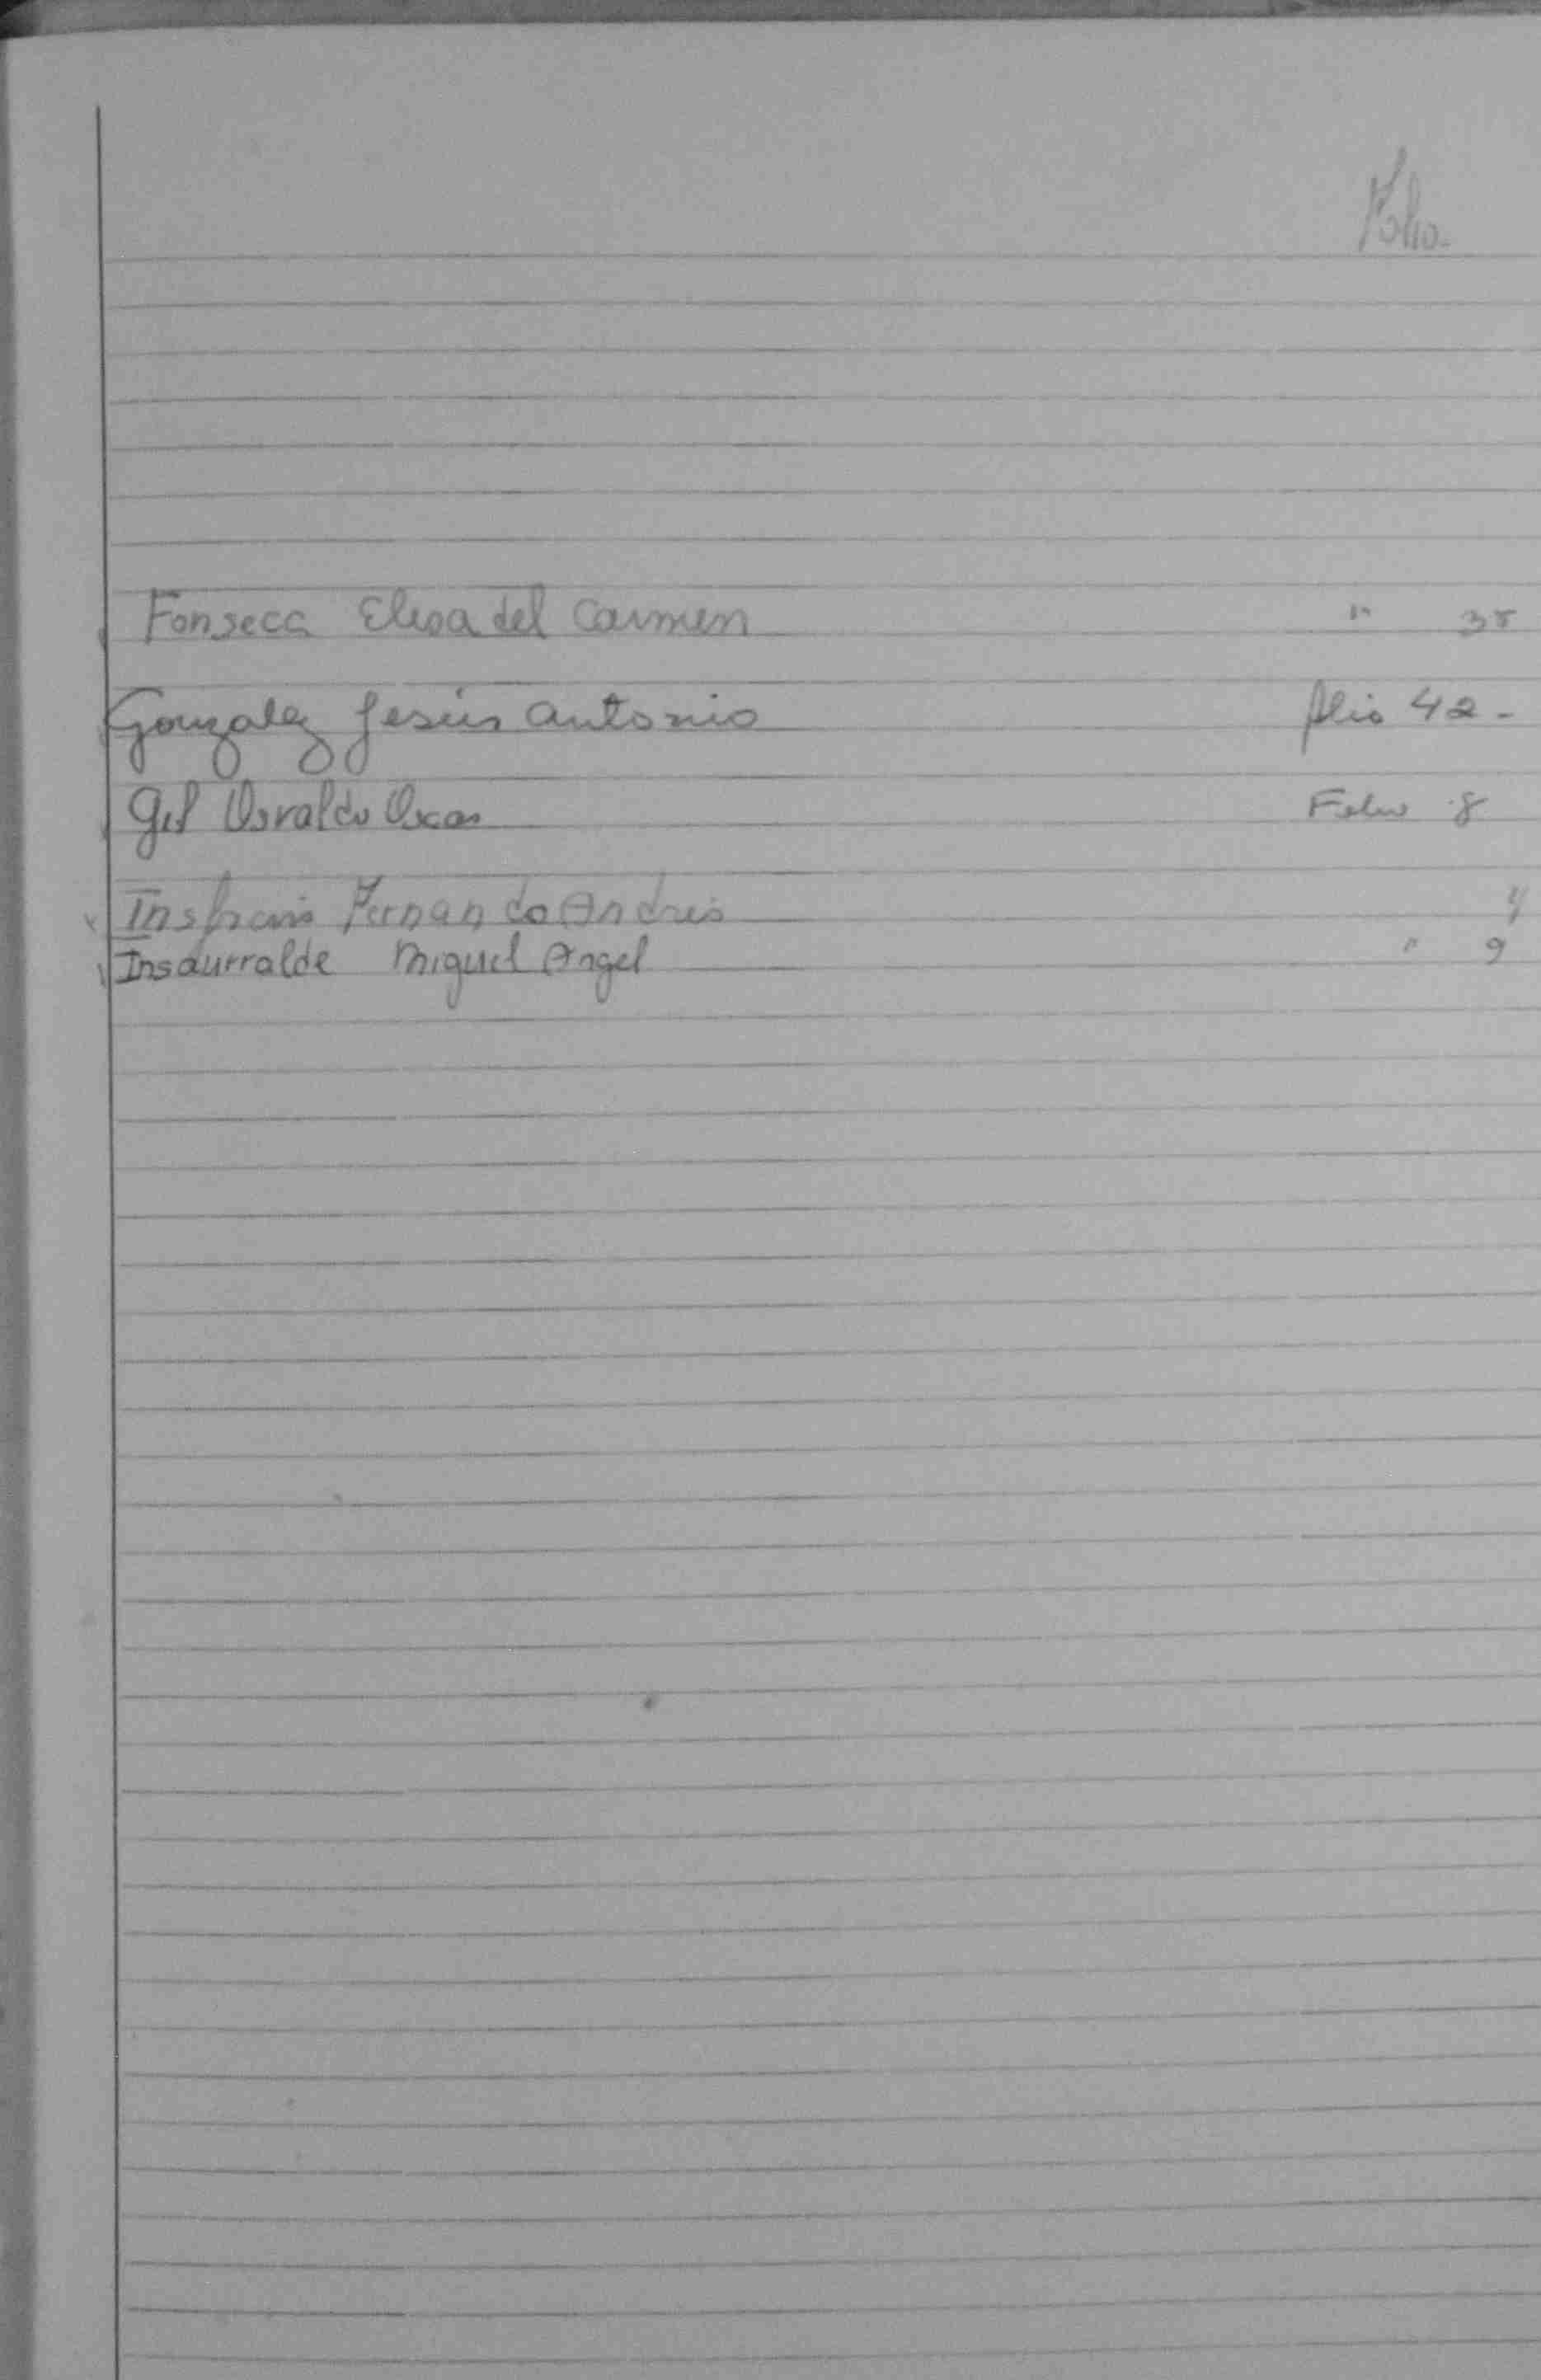 Folio.
Fonseca Elisa del Carmen " 38
Gonzalez Jesús Antonio folio 42-
Gil Osvaldo Oscar Folio 8
Fernando Andres
Insaurralde Miguel Angel " 9